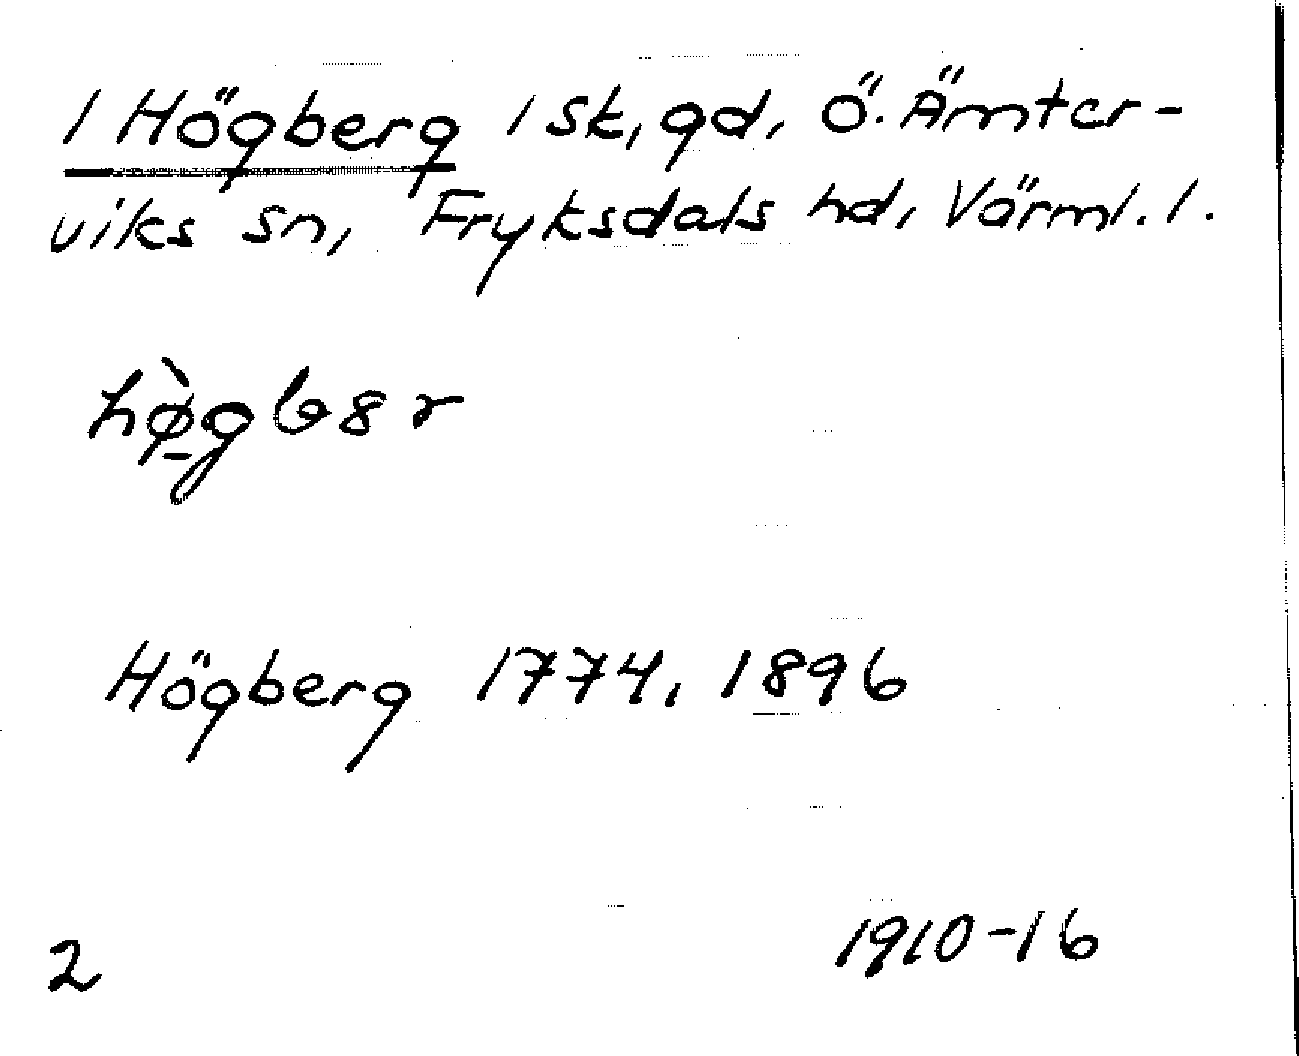 1 Högberg 1 sk, gd, Ö. Ämter-
viks sn, Fryksdals hd, Värml. l.
hø̀gb8r
Högberg 1774, 1896
2 1910-16